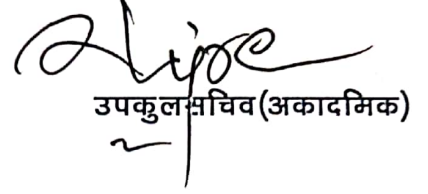 उपकुलसचिव (अकादमिक)